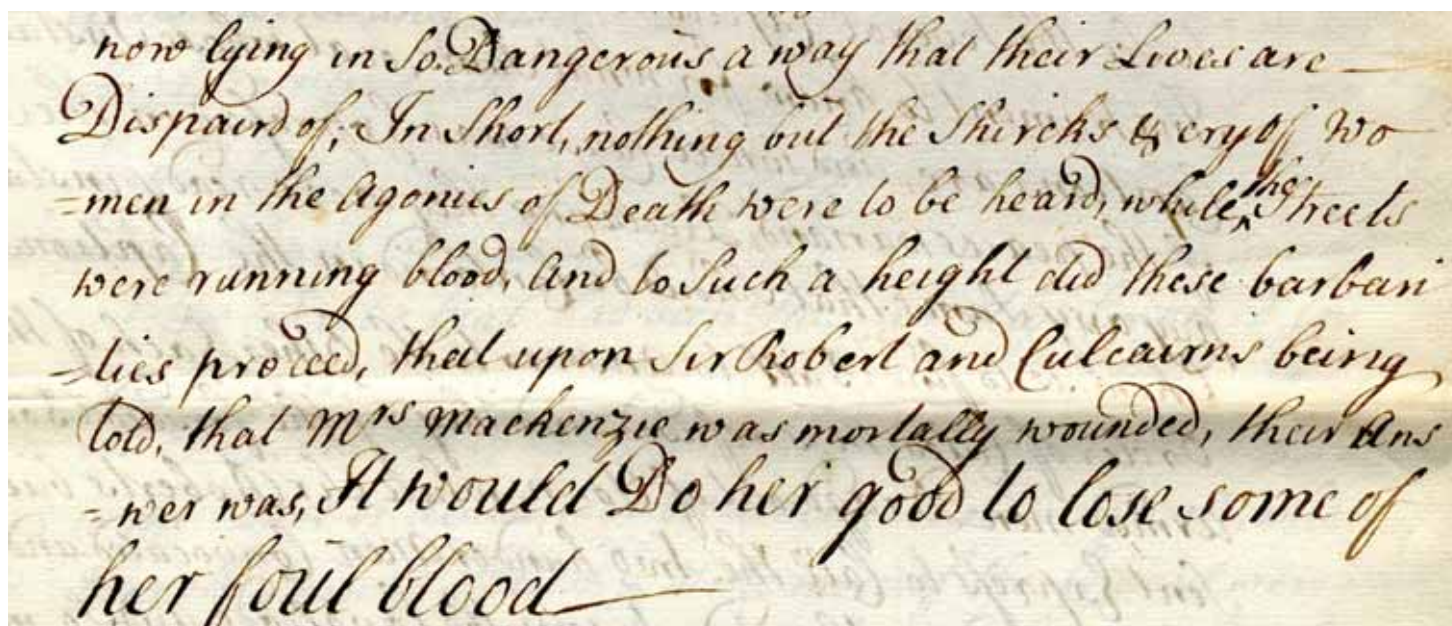 now lying in So Dangerous a way that their Lives are
Dispaird of; In Short, nothing but the Shircks & cry of Wo
=men in the Agonies of Death were to be heard, while ^the Streets
were running blood, and to Such a height did these barbari
=ties proceed, that upon Sir Robert and Culcairns being
told, that Mrs Mackenzie was mortally wounded, their Ans
=wer was, It would Do her good to lose some of
her foul blood